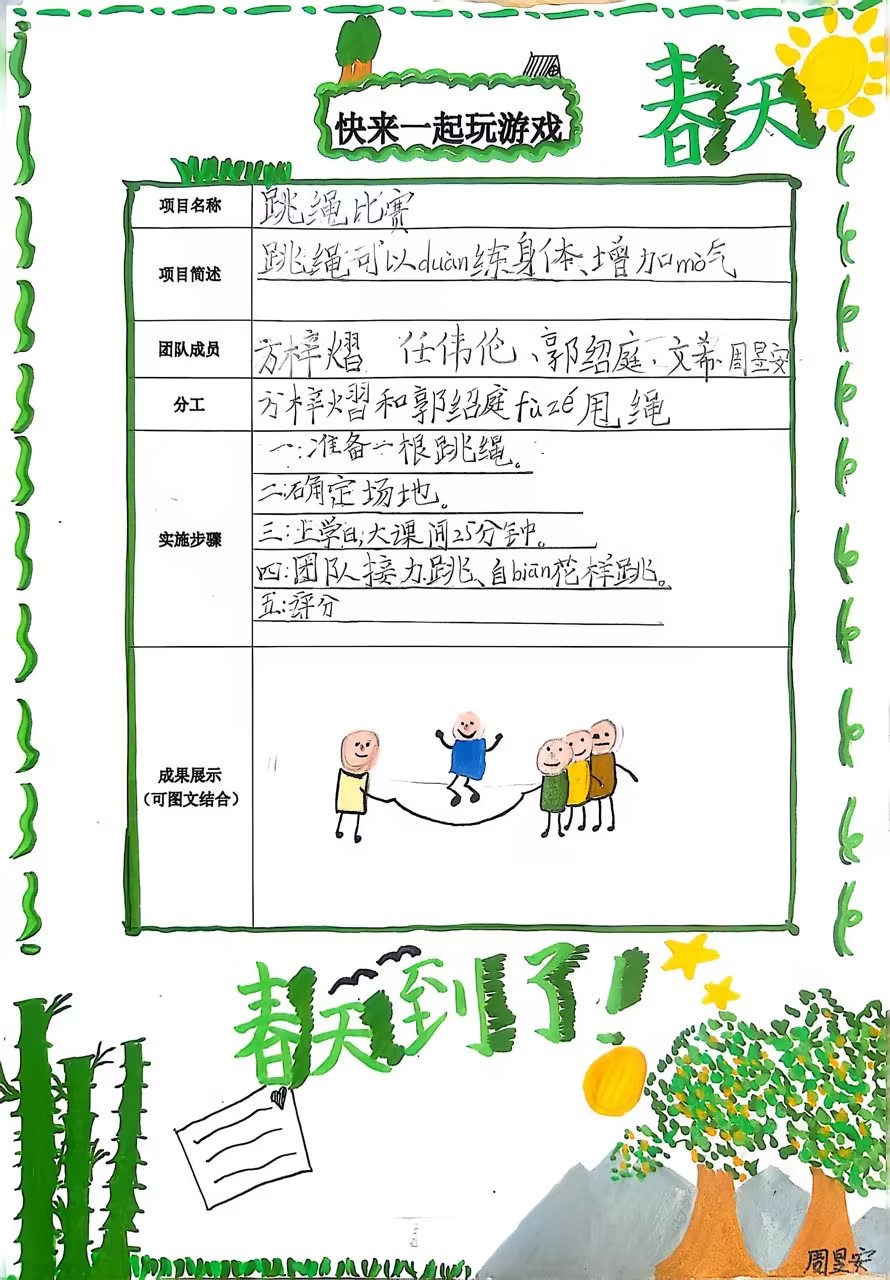 春天
快来一起玩游戏
项目名称
跳绳比赛
项目简述
跳绳可以duàn练身体、增加mò气
团队成员
方梓熠 任伟伦、郭绍庭、文希、周昱安
分工
方梓熠和郭绍庭fùzé甩绳
实施步骤
一:准备一根跳绳。
二:确定场地。
三:上学日,大课间25分钟。
四:团队接力跳、自biān花样跳。
五:评分
成果展示
(可图文结合)
春天到了!
周昱安